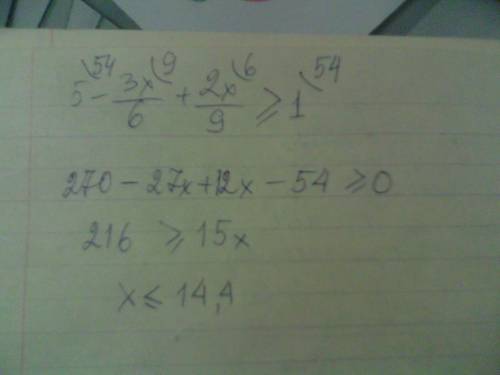 5\54 - 3x\9/6 + 2x\6/9 ≥ 1\54
270 - 27x + 12x - 54 ≥ 0
216 ≥ 15x
x ≤ 14,4